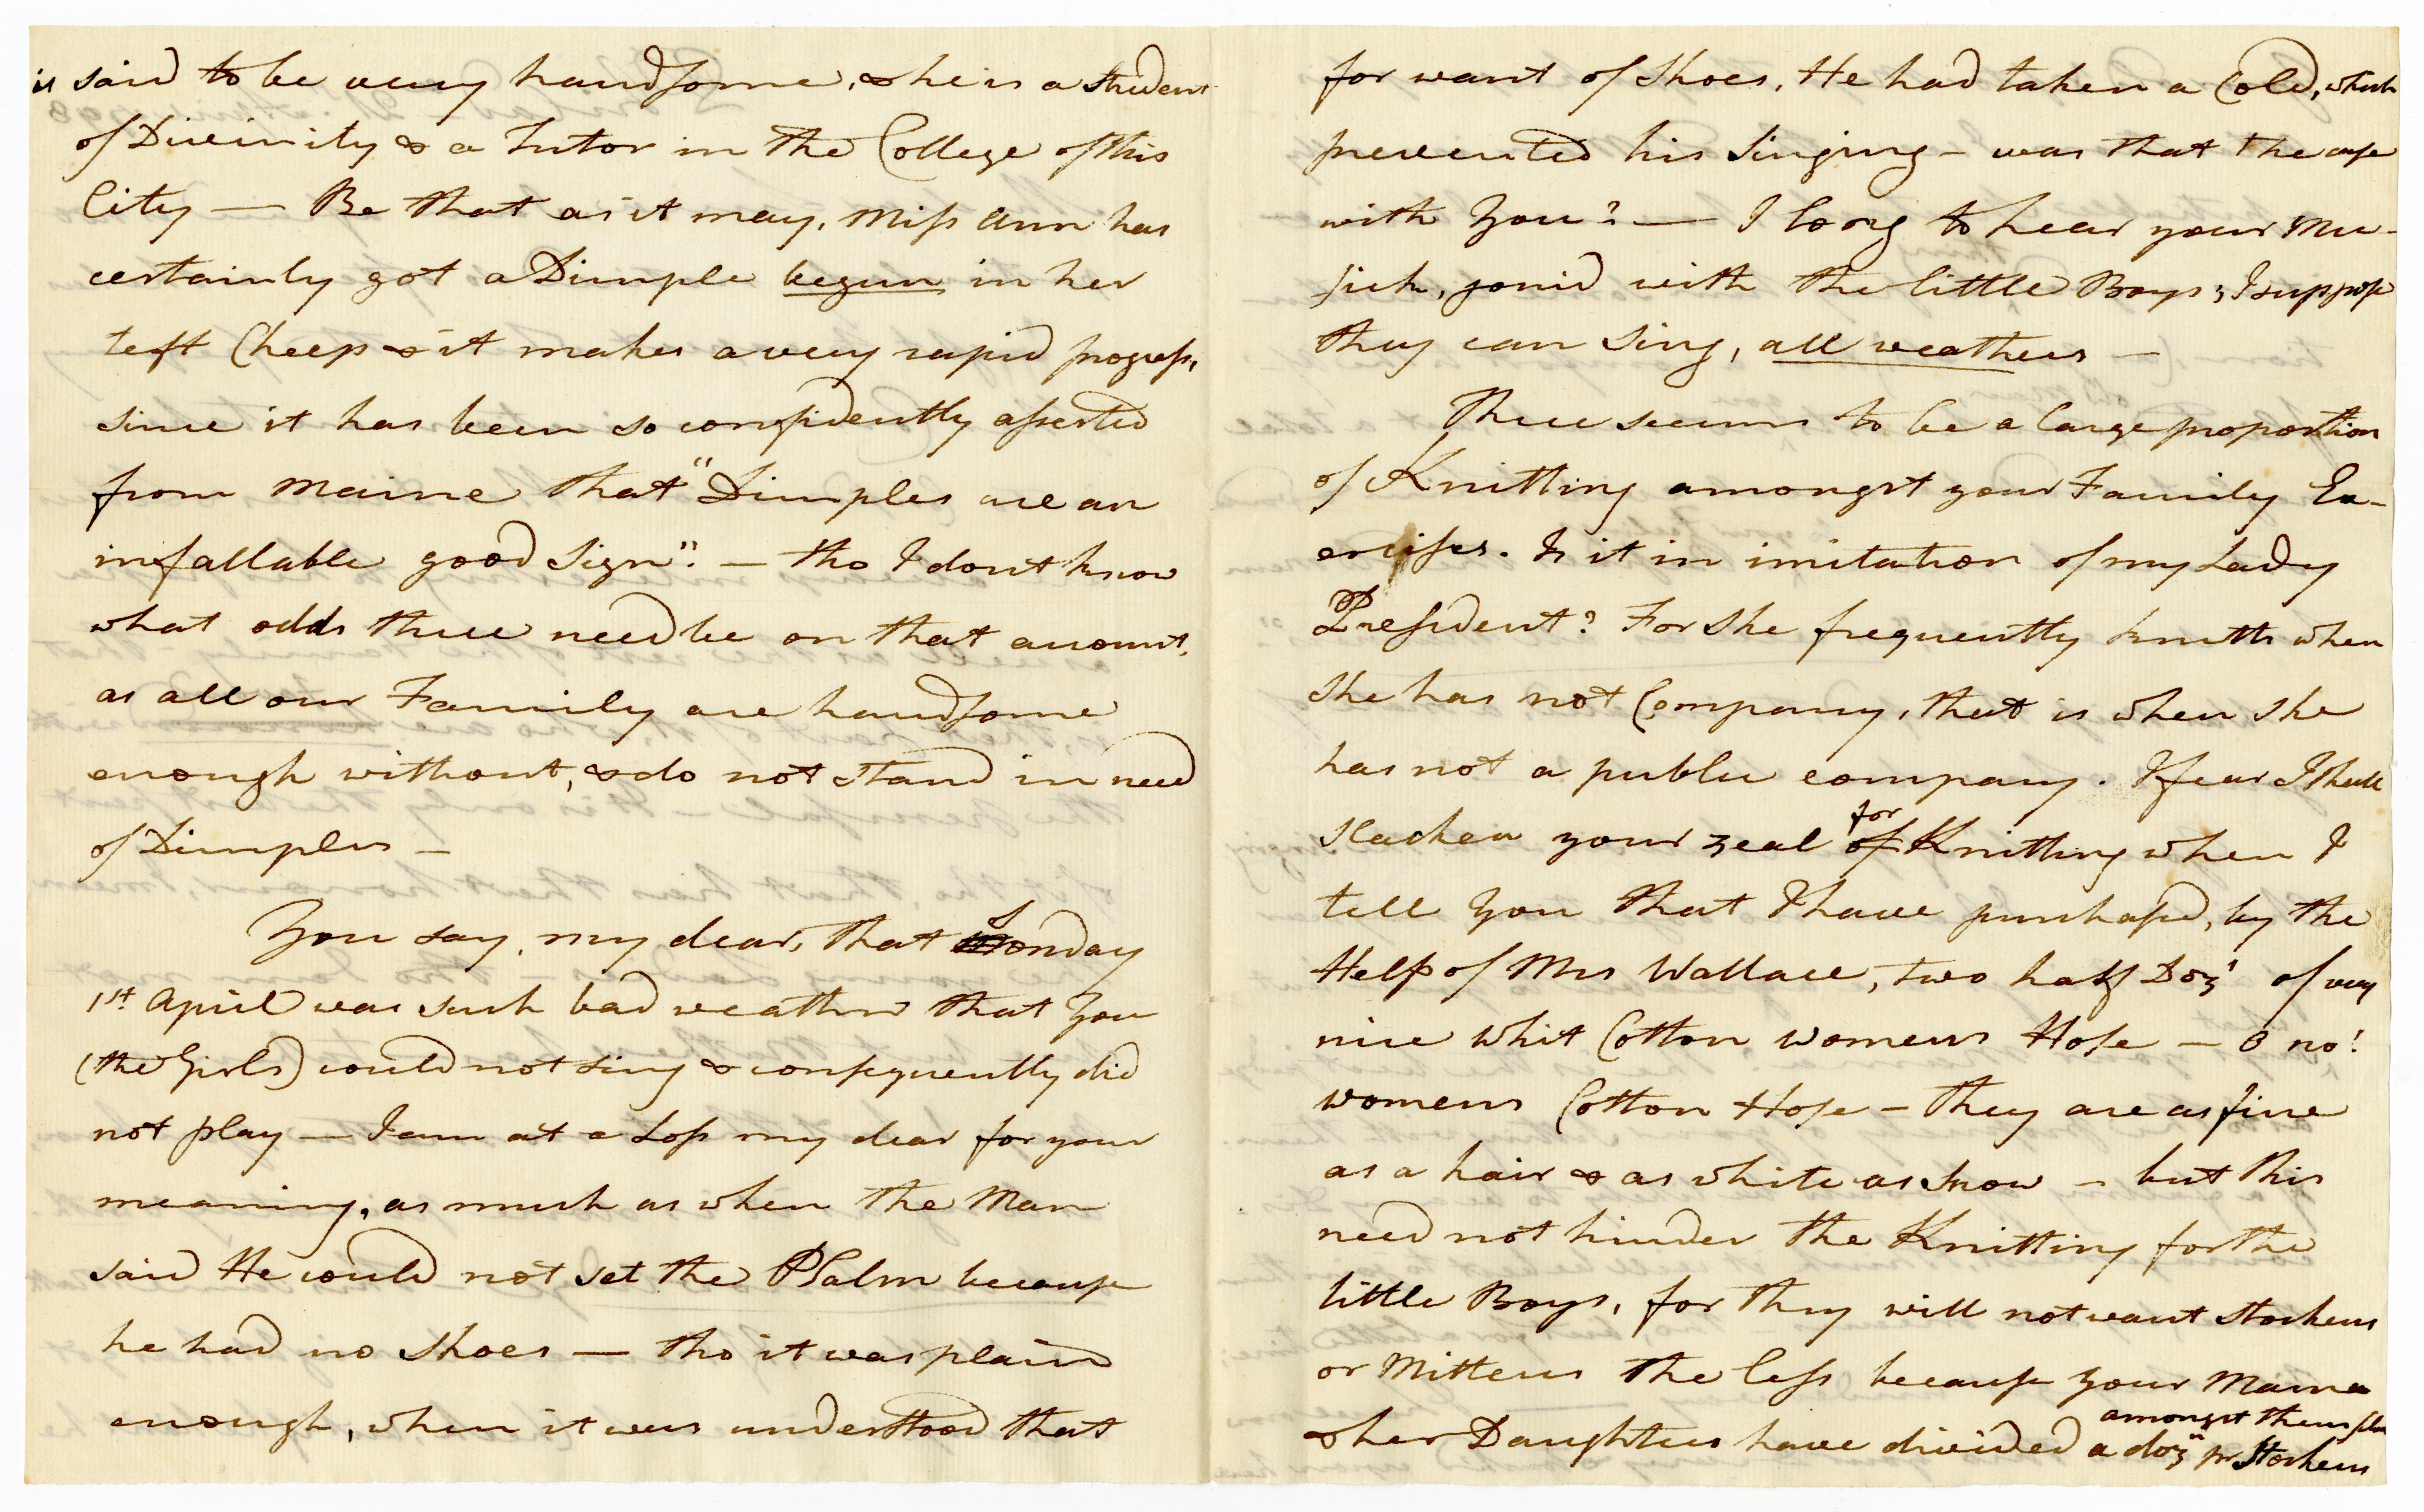 is said to be very handsome, & he is a Student
of Divinity & a Tutor in the College of this
City — Be that as it may, Miss Ann has
certainly got a Dimple begun in her
left Cheep & it makes a very rapid progress,
since it has been so confidently asserted
from Maine that "Dimples are an
infallable good Sign". — tho I dont know
what odds there need be on that account,
as all our Family are handsome
enough without, & do not stand in need
of Dimples —
You say, my dear, that Sonday
1st April was such bad weather that You
(the Girls) could not sing & consequently did
not play — I am at a Loss my dear for your
meaning, as much as when the Man
said He could not set the PSalm because
he had no Shoes — tho it was plain
enough, when it was understood that
for want of Shoes, He had taken a Cold, which
prevented his Singing — was that the case
with You? — I long to hear your Mu-
sick, joind with the little Boys; I suppose
they can Sing, all weathers —
There seems to be a large proportion
of Knitting amongst your Family Ex-
ercises. Is it in imitation of my Lady
President? For She frequently knitts when
She has not Company, that is when she
has not a public company. I fear I shall
slacken your zeal for of Knitting when I
tell You that I have purchased, by the
Help of Mrs Wallace, two half Doz of very
nice Whit Cotton womens Hose — O no!
womens Cotton Hose — they are as fine
as a hair & as white as Snow — but this
need not hinder the Knitting for the
little Boys, for they will not want Stockens
or Mittens the less because your Mama
& her Daughters have divided amongst themselves a doz pr Stockens